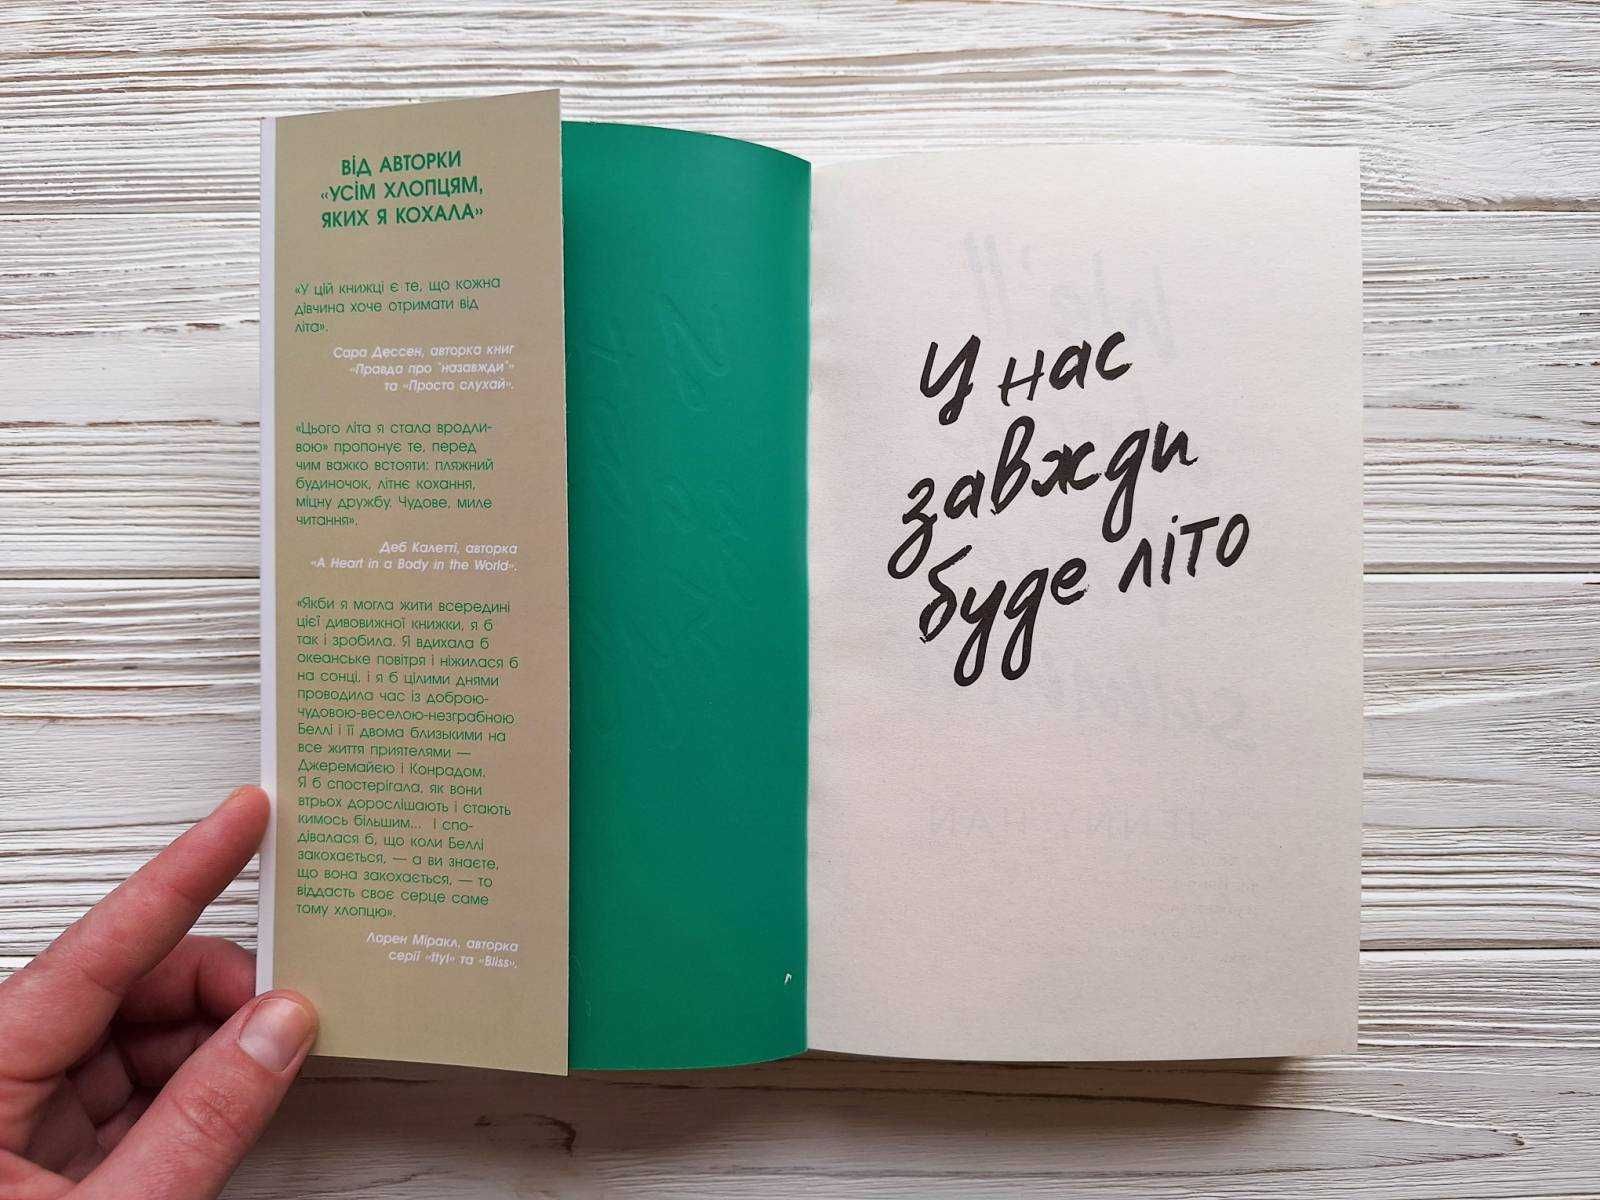 ВІД АВТОРКИ
«УСІМ ХЛОПЦЯМ,
ЯКИХ Я КОХАЛА»
«У цій книжці є те, що кожна
дівчина хоче отримати від
літа».
Сара Дессен, авторка книг
«Правда про "назавжди"»
та «Просто слухай».
«Цього літа я стала вродли-
вою» пропонує те, перед
чим важко встояти: пляжний
будиночок, літнє кохання,
міцну дружбу. Чудове, миле
читання».
Деб Калетті, авторка
«A Heart in a Body in the World».
«Якби я могла жити всередині
цієї дивовижної книжки, я б
так і зробила. Я вдихала б
океанське повітря і ніжилася б
на сонці. І я б цілими днями
проводила час із доброю-
чудовою-веселою-незграбною
Беллі і її двома близькими на
все життя приятелями —
Джеремайєю і Конрадом.
Я б спостерігала, як вони
втрьох дорослішають і стають
кимось більшим... І спо-
дівалася б, що коли Беллі
закохається, — а ви знаєте,
що вона закохається, — то
віддасть своє серце саме
тому хлопцю».
Лорен Міракл, авторка
серії «ttyl» та «Bliss».
У нас
завжди
буде літо